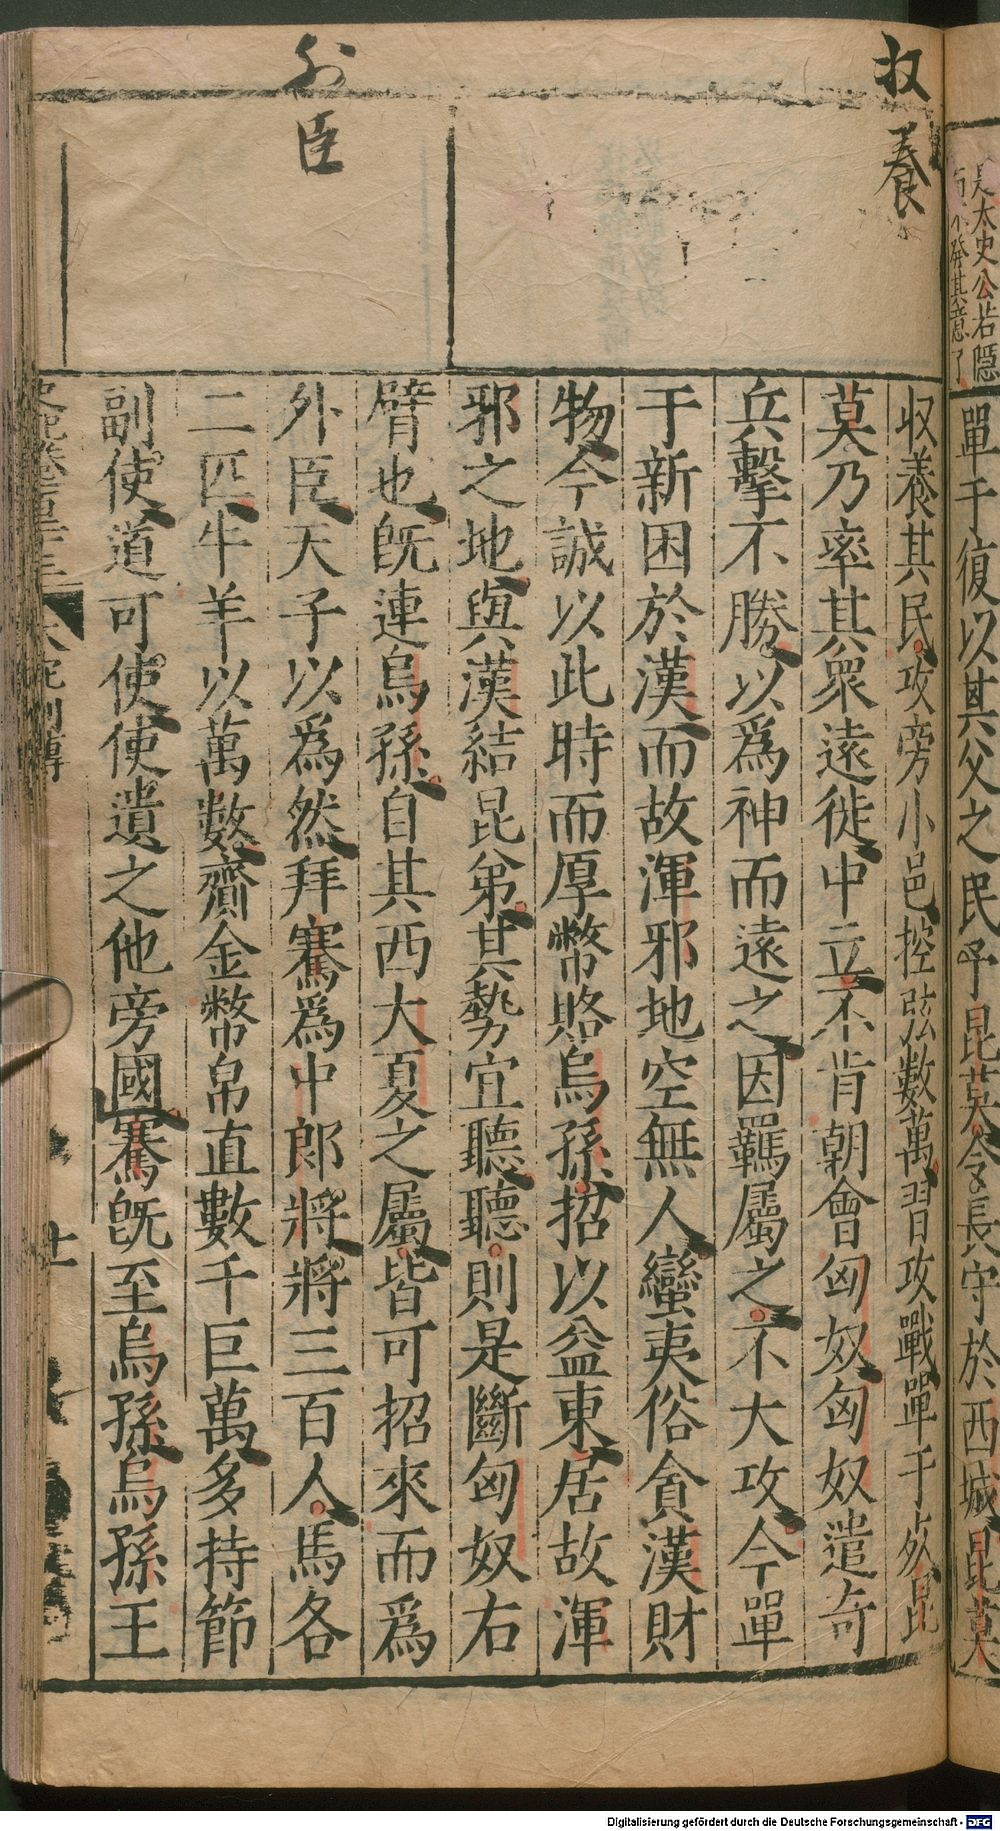 是太史公若隱
單于復以其父之民予昆莫令長守於西城昆莫
收養
収養其民攻旁小邑控弦數萬習攻戰單于死昆
莫乃率其衆遠徙中立不肯朝會匈奴匈奴遣奇
兵擊不勝以爲神而遠之因羈屬之不大攻今單
于新困於漢而故渾邪地空無人蠻夷俗貪漢財
物今誠以此時而厚幣賂烏孫招以益東居故渾
邪之地與漢結昆弟其勢宜聽聽則是斷匈奴右
臂也旣連烏孫自其西大夏之屬皆可招來而爲
外臣
外臣天子以爲然拜騫爲中郎將將三百人馬各
二匹牛羊以萬數齎金幣帛直數千巨萬多持節
副使道可使使遺之他旁國騫旣至烏孫烏孫王
列傳
十一
Digitalisierung gefördert durch die Deutsche Forschungsgemeinschaft - DFG